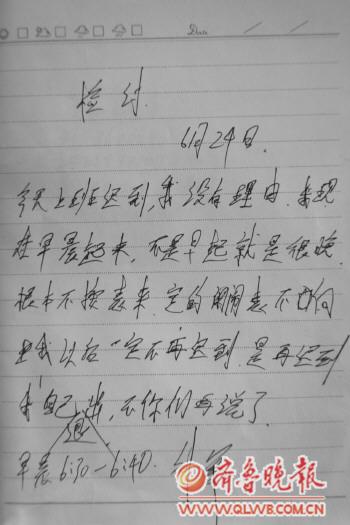 Date / /
检讨.
6月24日.
今天上班迟到,我没有理由.我现
在早晨起来,不是早起就是很晚.
根本不按表来.定的闹表不向
我以后一定不再迟到.是再迟到
我自己退出,不你们再说了.
早晨6:30-6:40.
齐鲁晚报
WWW.QLWB.COM.CN